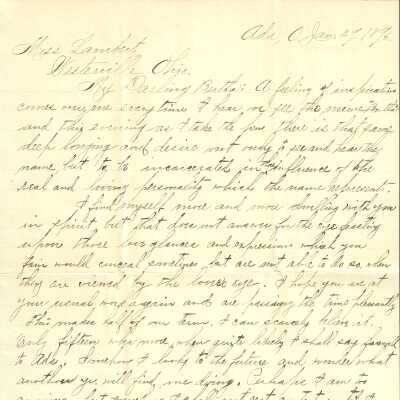 Ada, O. Jan. 27, 189
Miss Lambert
Westerville Ohio.
My Darling Bertha: A feeling of inspiration
comes over me every time I hear or see the name Bertha
and this evening as I take the pen there is that same
deep longing and desire not only to see and hear the
name, but to be incarcerated in the influence of the
real and loving personality which the name represents.
I find myself more and more dwelling with you
in spirit, but that does not answer for the eye feasting
upon those love glances and expressions which you
fain would conceal sometimes, but are not able to do so when
they are viewed by the lover's eye. I hope you are at
your usual again and are passing the time pleasantly
This makes half of our term. I can scarcely believe it.
Only fifteen more, when quite likely I shall say farewell
to Ada. Somehow I look to the future and wonder what
another yr. will find me doing. Perhaps I am too